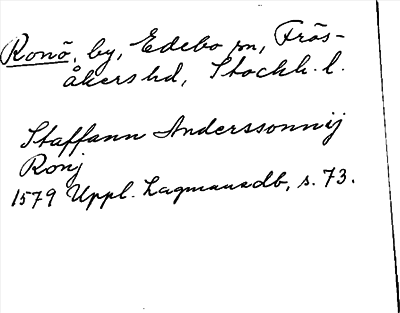 Ronö, by, Edebo sn, Frös-
åkers hd, Stockh. l.
Staffann Anderssonnij
Ronj
1579 Uppl. Lagmansdb, s. 73.